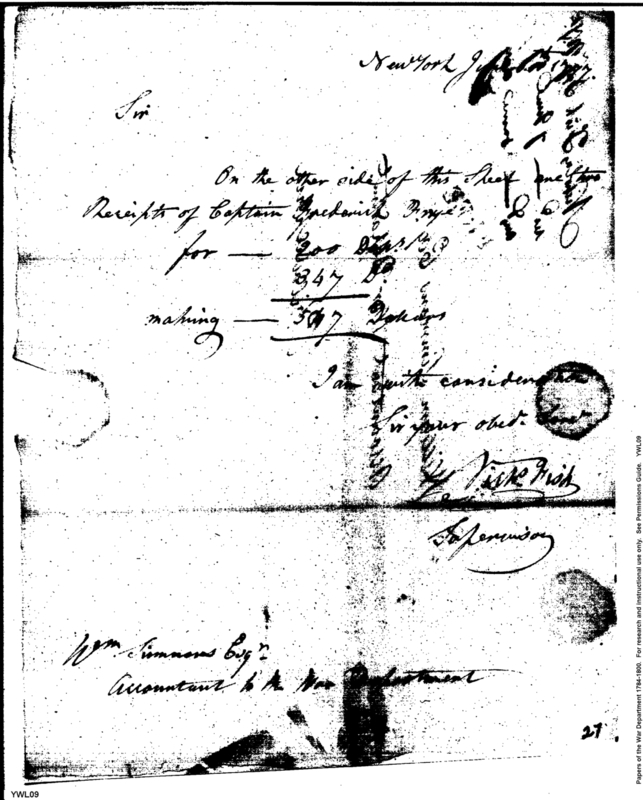 New York
1797.
Sir
On the other side of this Sheet are two
Receipts of Captain Frederick Frye
for — 200 Dollars
347 Do
making — 547 Dollars
I am with consideration
Sir your obedt. Servt
Nichs Fish
Supervisor
Wm Simmons Esqr.
Accountant to the War Department
27
YWL09
Papers of the War Department 1784-1800. For research and instructional use only. See Permissions Guide. YWL09